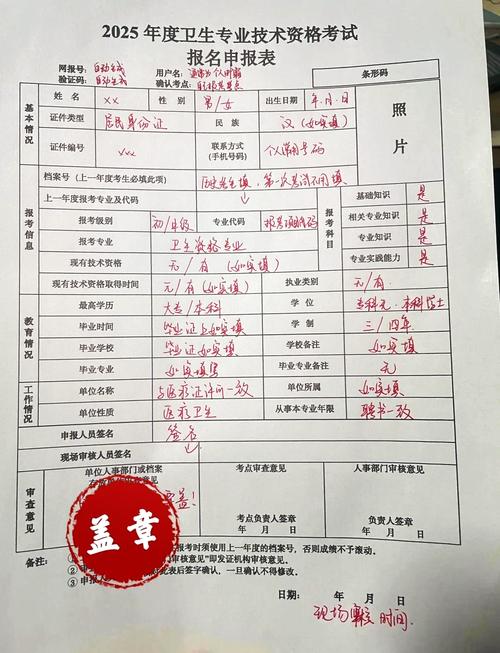 2025年度卫生专业技术资格考试
报名申报表
网报号: 自动生成 用户名: 通常为个人邮箱 条形码
验证码: 自动生成 确认考点:
基本情况 姓名 xx 性别 男/女 出生日期 年.月.日 照片
证件类型 居民身份证 民族 汉(如实填)
证件编号 xxx 联系方式(手机号码) 个人常用号码
档案号(上一年度考生必填此项) 历史考生填,第一次考试不用填
上一年度报考专业及代码
报考信息 报考级别 初/中级 专业代码 报考科目 基础知识 是
报考专业 卫生资格专业 相关专业知识 是
现有技术资格 无/有 (如实填) 专业知识 是
专业实践能力 是
现有技术资格取得时间 无/有(如实填) 执业类别 无/有
教育情况 最高学历 大专/本科 学位 专科无.本科学士
毕业时间 毕业证上如实填 学制 三/四年
毕业学校 毕业证如实填 学校备注 如实填
毕业专业 如实填写 毕业专业备注 无
工作情况 单位名称 与医疗证许可一致 单位所属 如实填
单位性质 医疗卫生 从事本专业年限 聘书一致
申报人员签名 签名
现场审核人员签名
审查意见 单位人事部门或档案 考点审查意见 人事部门审核意见
盖章
考点负责人签章 负责人签章
年 月 日 年 月 日
备注:
报考时须使用上一年度的档案号,否则成绩不予滚动。
②
审核意见"即发证机构审核意见。
③ 申报人
此表后签字确认,一旦确认不得修改。
日期: 年 月 日
现场审核时间.